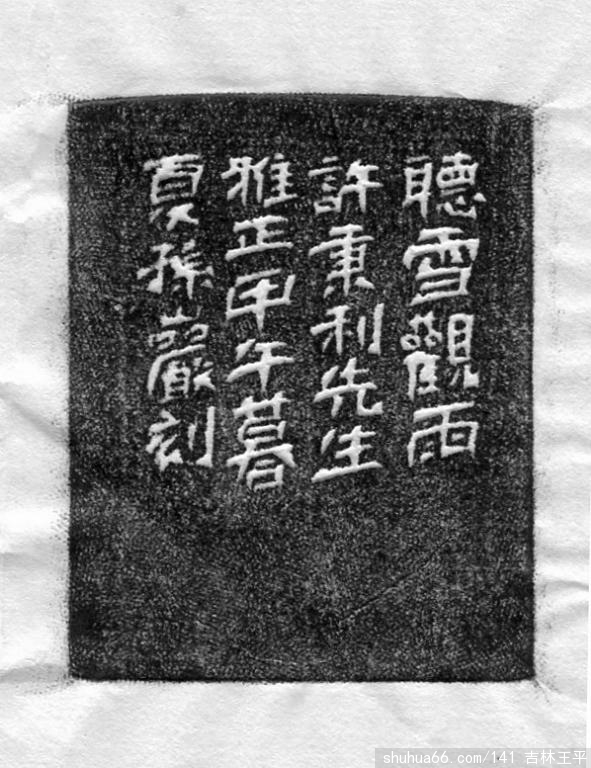 聽雪觀雨
許秉利先生
雅正甲午暮
夏孫嚴刻
shuhua66.com/141 吉林王平